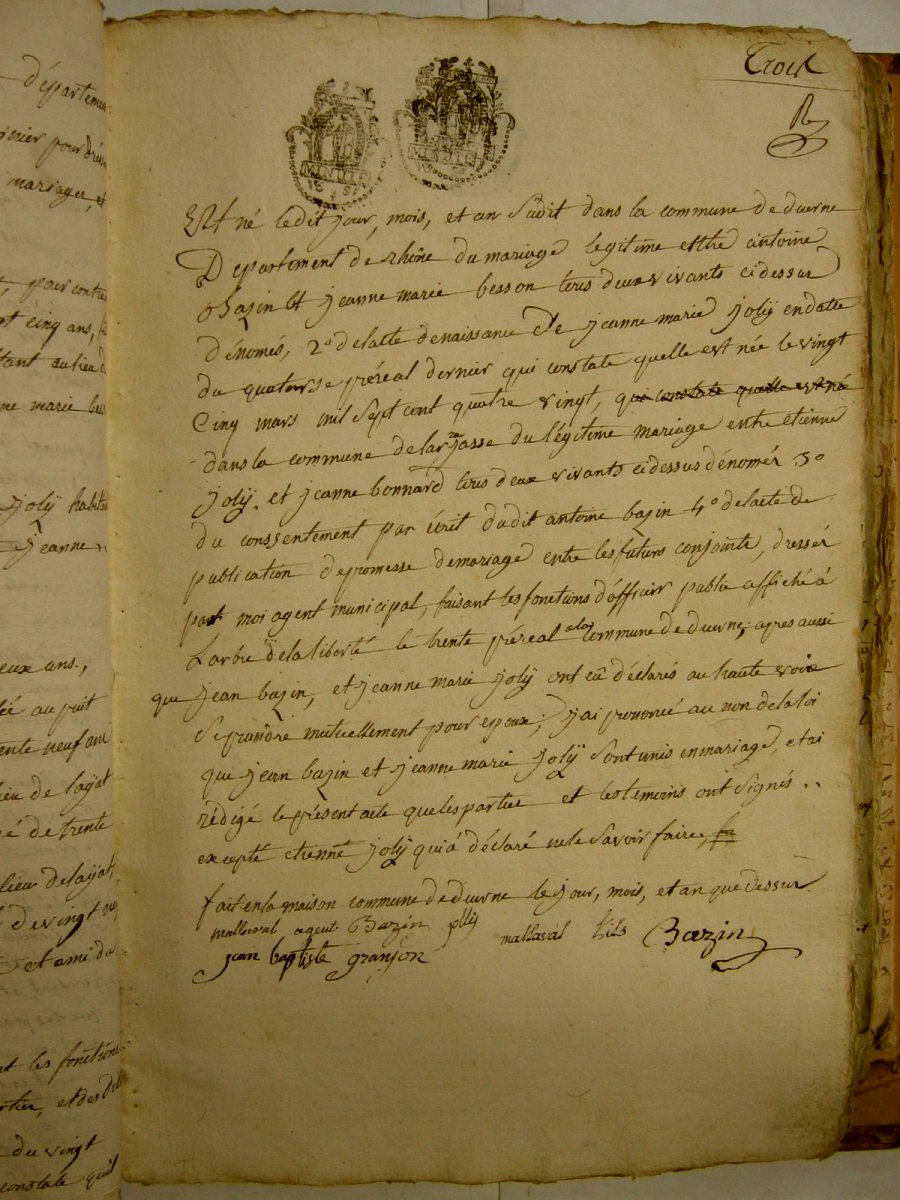 Trois
Est né ledit jour, mois, et an Sudit dans la commune de duerne
Département de rhône du mariage legitime entre antoine
bazin et jeanne marie besson tous deux vivants ci dessus
dénomés, 2º de lacte de naissance de jeanne marie joly en datte
du quatorse préreal dernier qui constate quelle est née le vingt
Cinq mars mil Sept cent quatre vingt, qui constate quelle est né
dans la commune de larajasse du légitime mariage entre etienne
joly, et jeanne bonnard tous deux vivants ci dessus dénomér 3º
du conssentement par écrit dudit antoine bazin 4º de lacte de
publication de promesse de mariage entre les futurs conjoints, dressér
par moi agent municipal, faisant les fonctions d'officier public affiché à
Larbre de la liberté le trente préreal a la commune de duerne, apres aussi
que jean bazin, et jeanne marie joly ont eû déclarés au haute voix
Se prandre mutuellement pour epoux, j'ai prononcé au non de la loi
que jean bazin et jeanne marie joly Sont unis en mariage, et ai
rédigé le présent acte que les partie et les temoins ont signés . .
excepté etienne joly qui á déclaré ne le savoir faire,
fait en la maison commune de duerne le jour, mois, et an que dessur
mallaval agent Bazin mallaval fils Bazin
jean baptiste granjon
départemen
mier pour
mariages, et
pour contra
cinq ans,
au lieu
ne marie bess
joly habitan
jeanne
eux ans,
au puit
ente neuf ans
lieu de layat
é de trente
lieu delayat,
de vingt
et ami du
les fonctions
et des
du vingt
constate quil